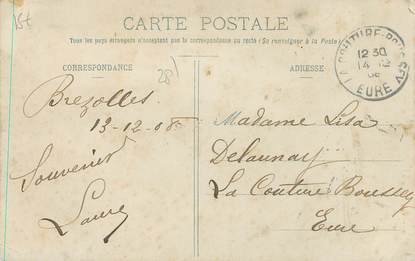 CARTE POSTALE
Tous les pays étrangers n'acceptent pas la correspondance au recto (Se renseigner à la Poste)
CORRESPONDANCE
ADRESSE
LA COUTURE-BOUSSEY
12 30
14 12
08
EURE
Brezolles
13-12-08
Souvenir
Laure
Madame Lisa
Delaunay
La Couture Boussey
Eure